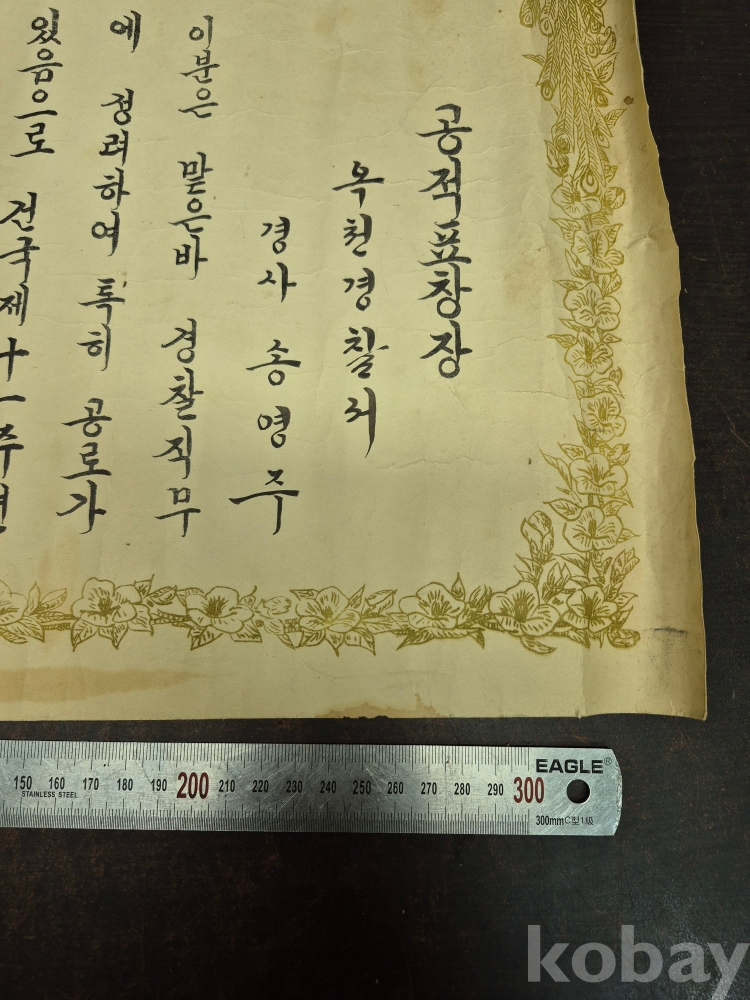 공적표창장
옥천경찰서
경사 송영주
이분은 맡은바 경찰직무
에 정려하여 특히 공로가
있음으로 건국제十一주년
150 160 170 180 190 200 210 220 230 240 250 260 270 280 290 300
STAINLESS STEEL
EAGLE®
300mm C型1級
kobay